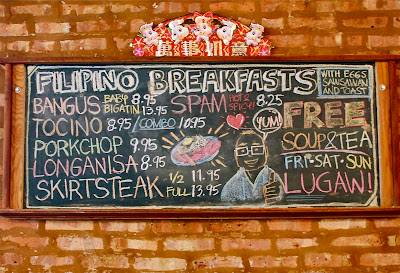 萬事如意
FILIPINO BREAKFASTS WITH EGGS
SAWSAWAN
AND TOAST
BANGUS BABY 8.95
BIGATIN 13.95
SPAM HOT & SPICY! 8.25
TOCINO 8.95 / COMBO / 10.95
PORKCHOP 9.95
LONGANISA 8.95
SKIRTSTEAK 1/2 11.95
FULL 13.95
YUM!
FREE
SOUP & TEA
FRI • SAT • SUN
LUGAW!